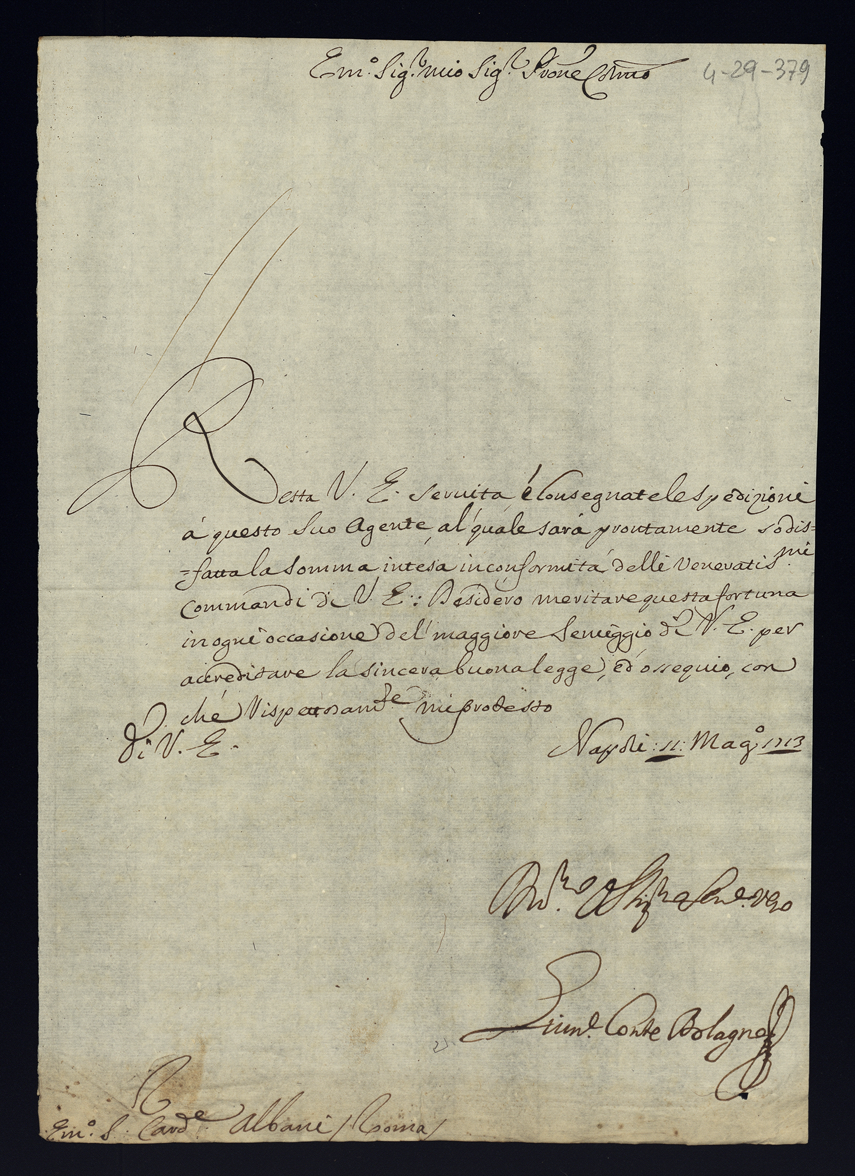 Em.º Sig.r mio Sig.r Prone Colmo
4-29-379
Resta V. E. seruita è Consegnate le spedizioni
à questo suo Agente, al quale sarà prontamente sodis=
=fatta la somma intesa in conformità delli Veneratis.mi
Commandi di V. E.: Desidero meritare questa fortuna
in ogni occasione del maggiore seruiggio di V. E. per
accreditare la sincera buona legge, ed ossequio, con
che rispettosam.te mi protesto
Di V. E.
Napoli 11 Mag.º 1713
Conte Bolagno
Em.º S. Card.e Albani / Roma /